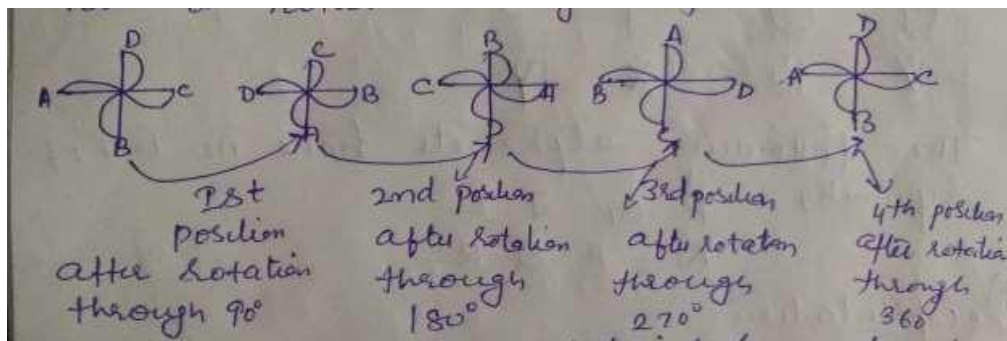 D
A C
B
C
D B
A
B
C A
A
B D
C
D
A C
B
Ist
position
after rotation
through 90°
2nd position
after rotation
through
180°
3rd position
after rotation
through
270°
4th position
after rotation
through
360°